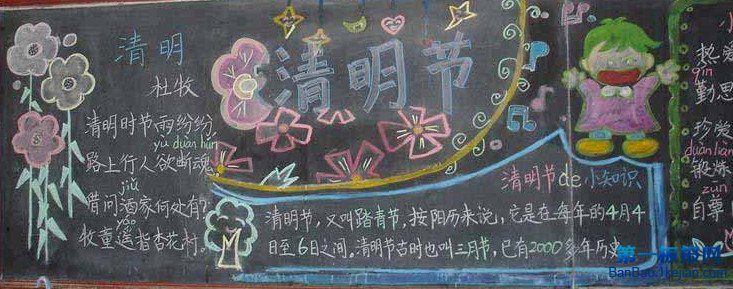 清明
杜牧
清明时节雨纷纷
yù duàn hún
路上行人欲断魂
jiǔ
借问酒家何处有?
yáo
牧童遥指杏花村。
清明节
清明节de小知识
清明节，又叫踏青节，按阳历来说，它是在每年的4月4
日至6日之间，清明节古时也叫三月节，已有2000多年历史
热爱
qín
勤思
珍爱
duàn liàn
锻炼
zūn
自尊
第一板报网
BanBao.1kejian.com